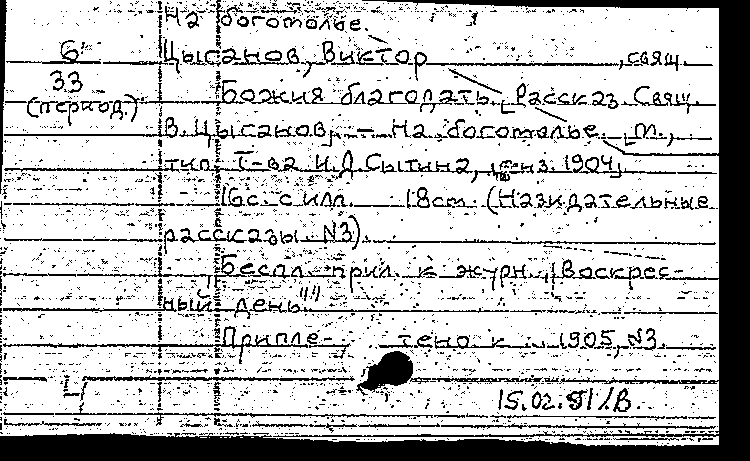 На богомолье.
6 Цысанов, Виктор , свящ.
33 Божия благодать. [Рассказ. Свящ.
(период.) В. Цысанов]. – На богомолье. [М.,
тип. Т-ва И.Д.Сытина, ценз. 1904]
16с. с илл. 18см. (Назидательные
рассказы. N3).
Беспл. прил. к журн. "Воскрес-
ный день"
Припле- тено к 1905, N3.
Ч 15.02.81/В.